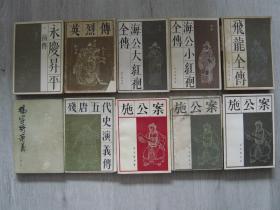 永慶昇平
前傳
英烈傳
海公大紅袍
全傳
海公小紅袍
全傳
飛龍全傳
楊家将演義
殘唐五代
史演義傳
施公案
施公案
施公案